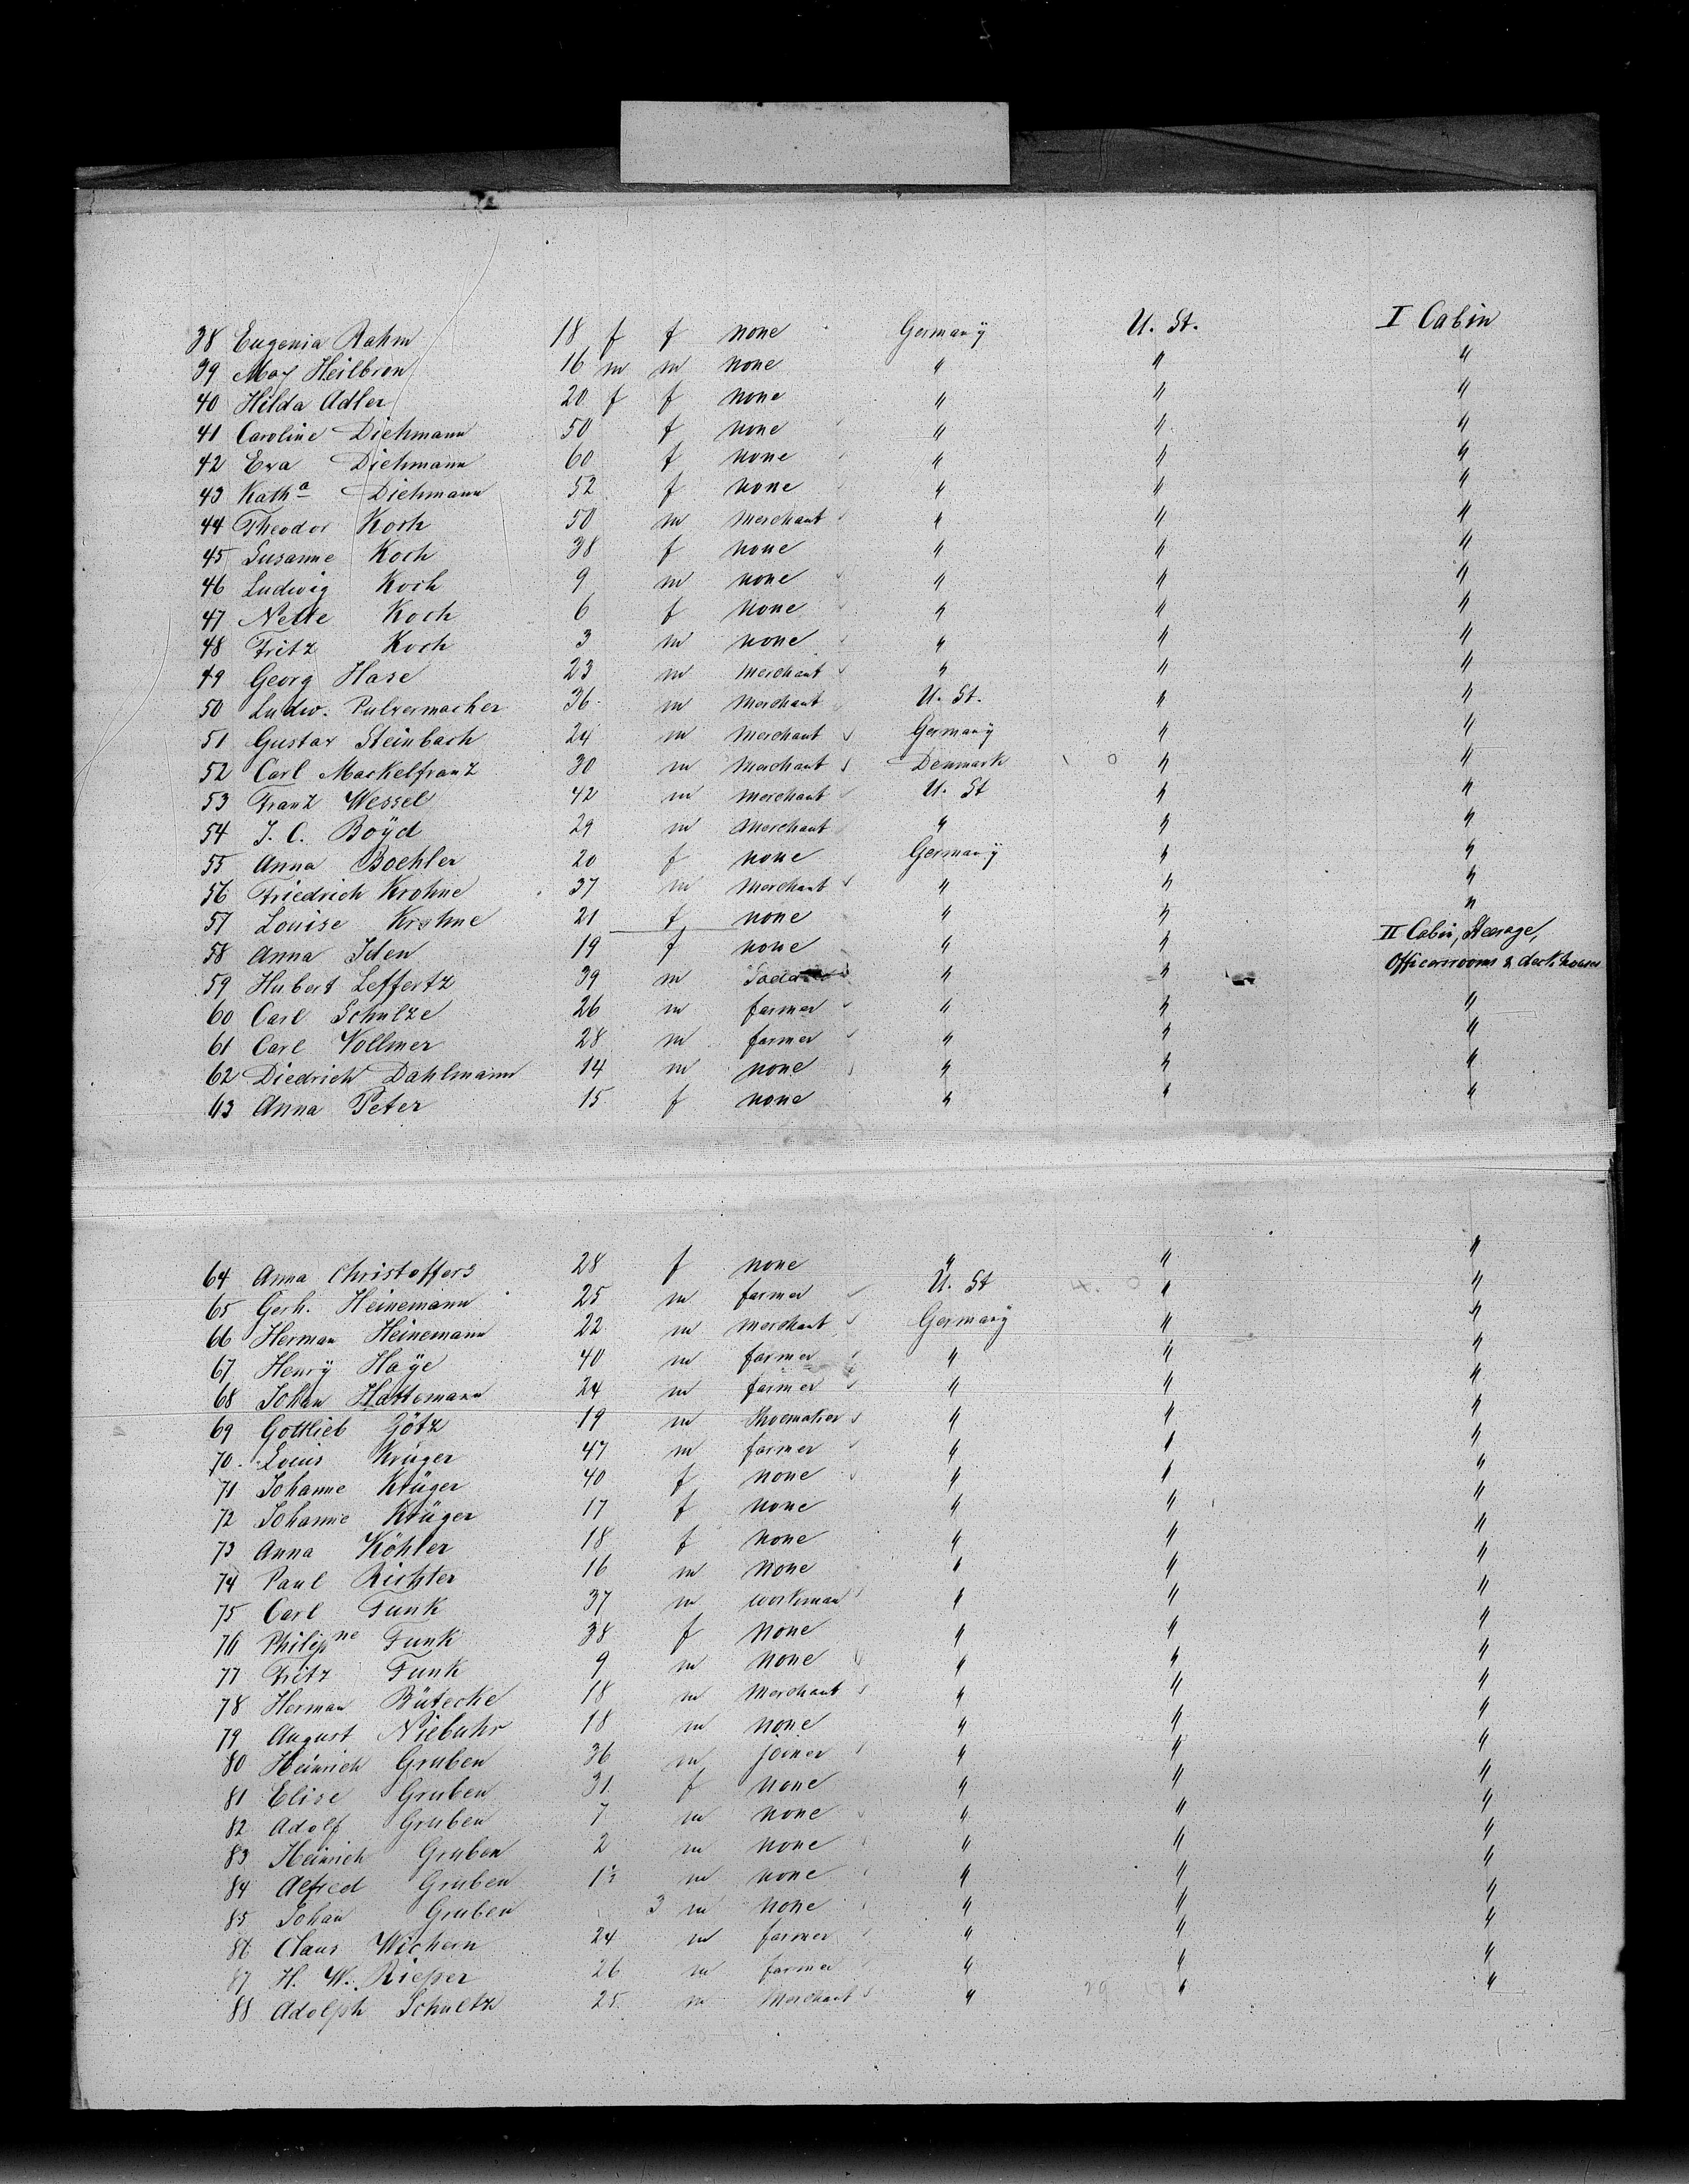 38 Eugenia Rahm 18 f f none Germany U. St. I Cabin
39 Max Heilbron 16 m m none " " "
40 Hilda Adler 20 f f none " " "
41 Caroline Diehmann 50 f none " " "
42 Eva Diehmann 60 f none " " "
43 Kath<sup>a</sup> Diehmann 52 f none " " "
44 Theodor Koch 50 m Merchant " " "
45 Susanne Koch 38 f none " " "
46 Ludwig Koch 9 m none " " "
47 Nette Koch 6 f none " " "
48 Fritz Koch 3 m none " " "
49 Georg Hase 23 m Merchant " " "
50 Ludw. Pulvermacher 36 m Merchant U. St. " "
51 Gustav Steinbach 24 m Merchant Germany " "
52 Carl Mackelfranz 30 m Merchant Denmark 0 " "
53 Franz Wessel 42 m Merchant U. St " "
54 J. C. Boÿd 29 m Merchant " " "
55 Anna Boehler 20 f none Germany " "
56 Friedrich Krohne 37 m Merchant " " "
57 Louise Krohne 21 f none " " "
58 Anna Iden 19 f none " " II Cabin, Steerage,
59 Hubert Leffertz 39 m " " Officersrooms & deckhouse
60 Carl Schulze 26 m farmer " " "
61 Carl Vollmer 28 m farmer " " "
62 Diedrich Dahlmann 14 m none " " "
63 Anna Peter 15 f none " " "
64 Anna Christoffers 28 f none " " "
65 Gerh. Heinemann 25 m farmer U. St 0 " "
66 Herman Heinemann 22 m Merchant Germany " "
67 Henrÿ Haÿe 40 m farmer " " "
68 Johan Hattemann 24 m farmer " " "
69 Gottlieb Götz 19 m Shoemaker " " "
70. Louis Krüger 47 m farmer " " "
71 Johanne Krüger 40 f none " " "
72 Johanne Krüger 17 f none " " "
73 Anna Köhler 18 f none " " "
74 Paul Richter 16 m none " " "
75 Carl Funk 37 m workman " " "
76 Philip<sup>ne</sup> Funk 38 f none " " "
77 Fritz Funk 9 m none " " "
78 Herman Bütecke 18 m Merchant " " "
79 August Niebuhr 18 m none " " "
80 Heinrich Gruben 36 m joiner " " "
81 Elise Gruben 31 f none " " "
82 Adolf Gruben 7 m none " " "
83 Heinrich Gruben 2 m none " " "
84 Alfred Gruben m none " " "
85 Johan Gruben 3 m none " " "
86 Claus Wichern 24 m farmer " " "
87 H. W. Rieper 26 m farmer " " "
88 Adolph Schultz 25 m Merchant " 29 " "